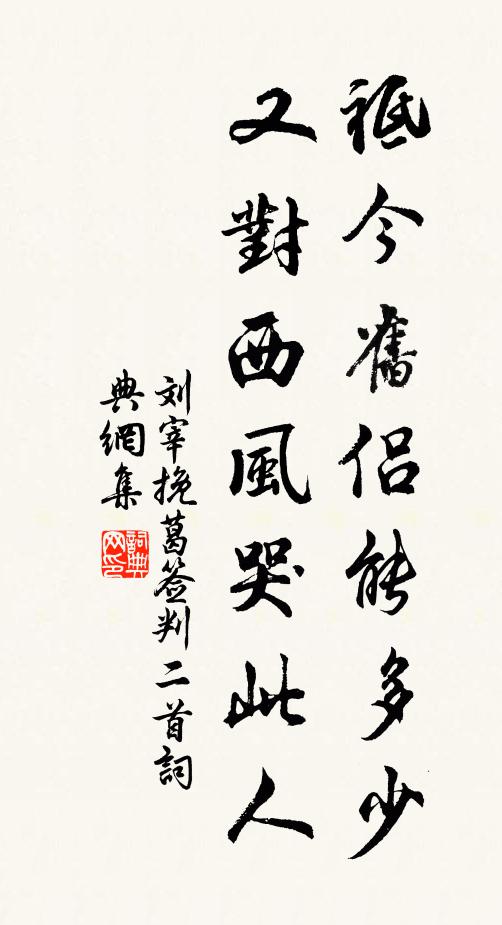 祗今舊侶能多少
又對西風哭此人
刘宰挽葛签判二首詞
典網集
詞典
网印